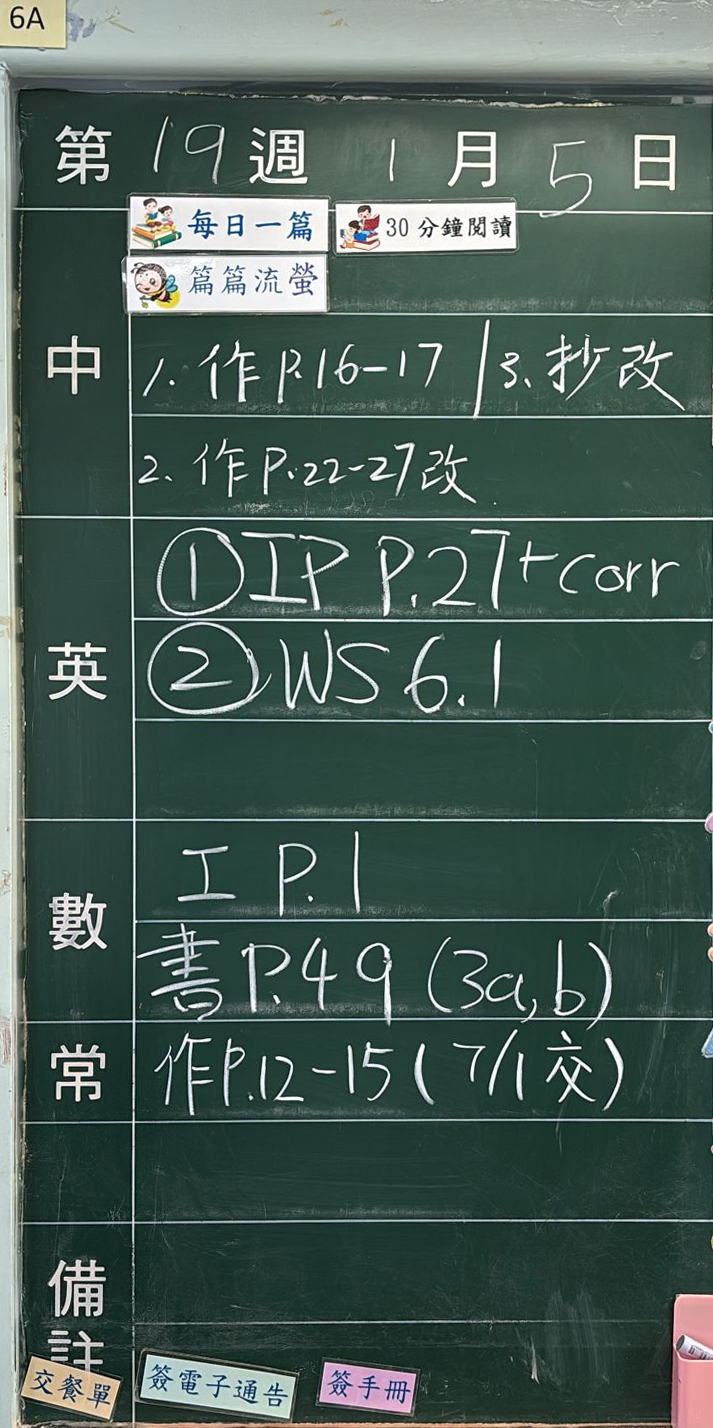 6A
第 19 週 1 月 5 日
每日一篇 30分鐘閱讀
篇篇流螢
中
1. 作 P.16-17 / 3. 抄改
2. 作 P.22-27改
英
① IP P.27+corr
② WS 6.1
數
工 P.1
書 P.49 (3a,b)
常
作P.12-15 ( 7/1 交)
備註
交餐單 簽電子通告 簽手冊